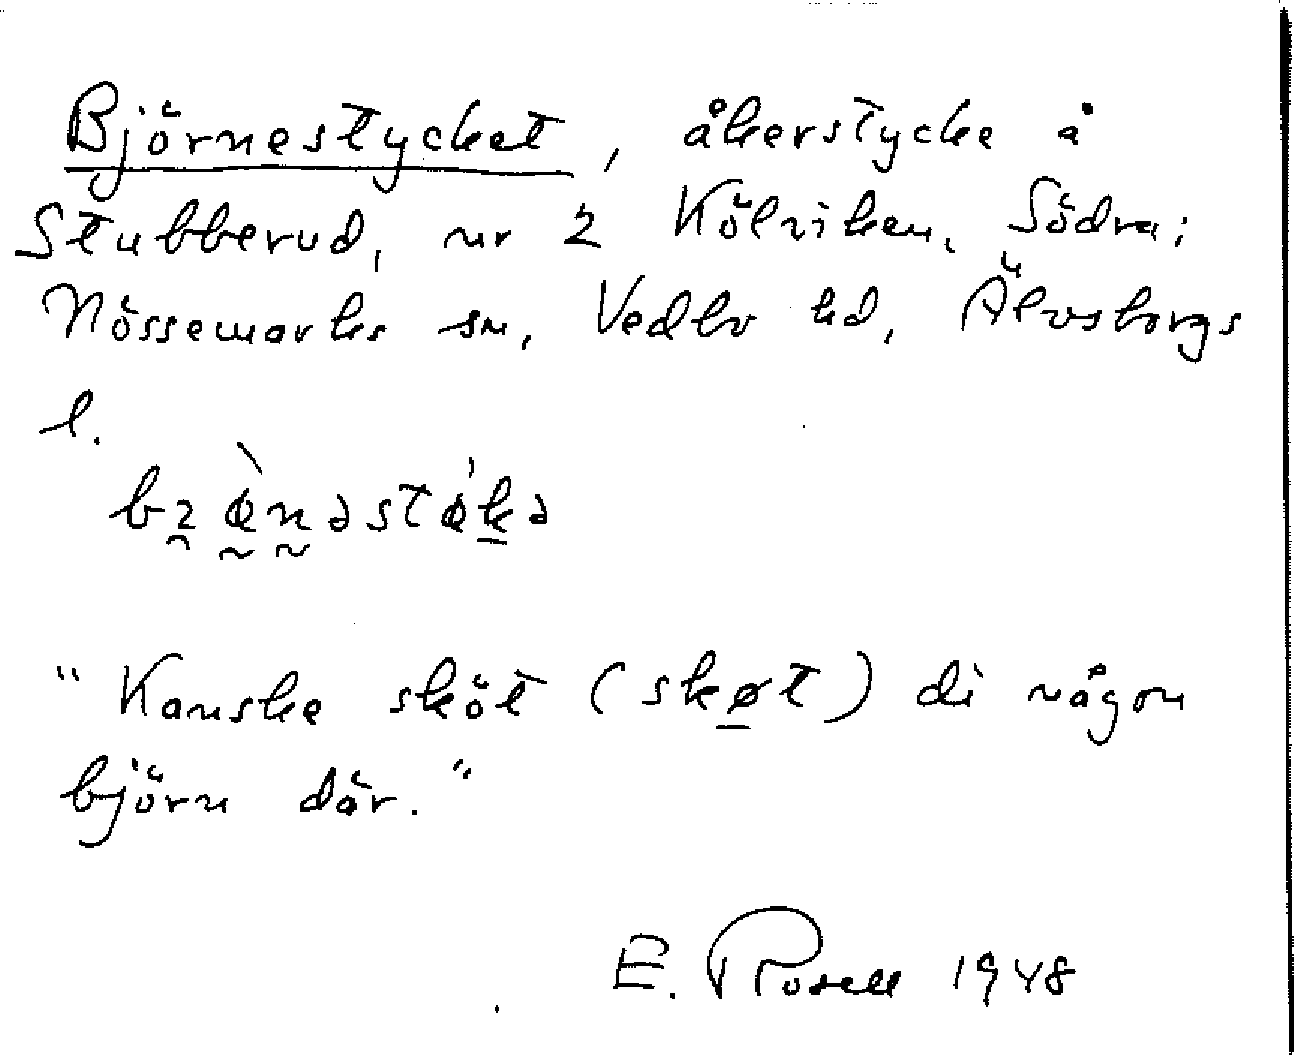 Björnestycket, åkerstycke å
Stubberud, nr 2 Kölviken, Södra;
Nössemarks sn, Vedbo hd, Älvsborgs
l.
"Kanske sköt (skøt) di någon
björn där."
E. Rosell 1948